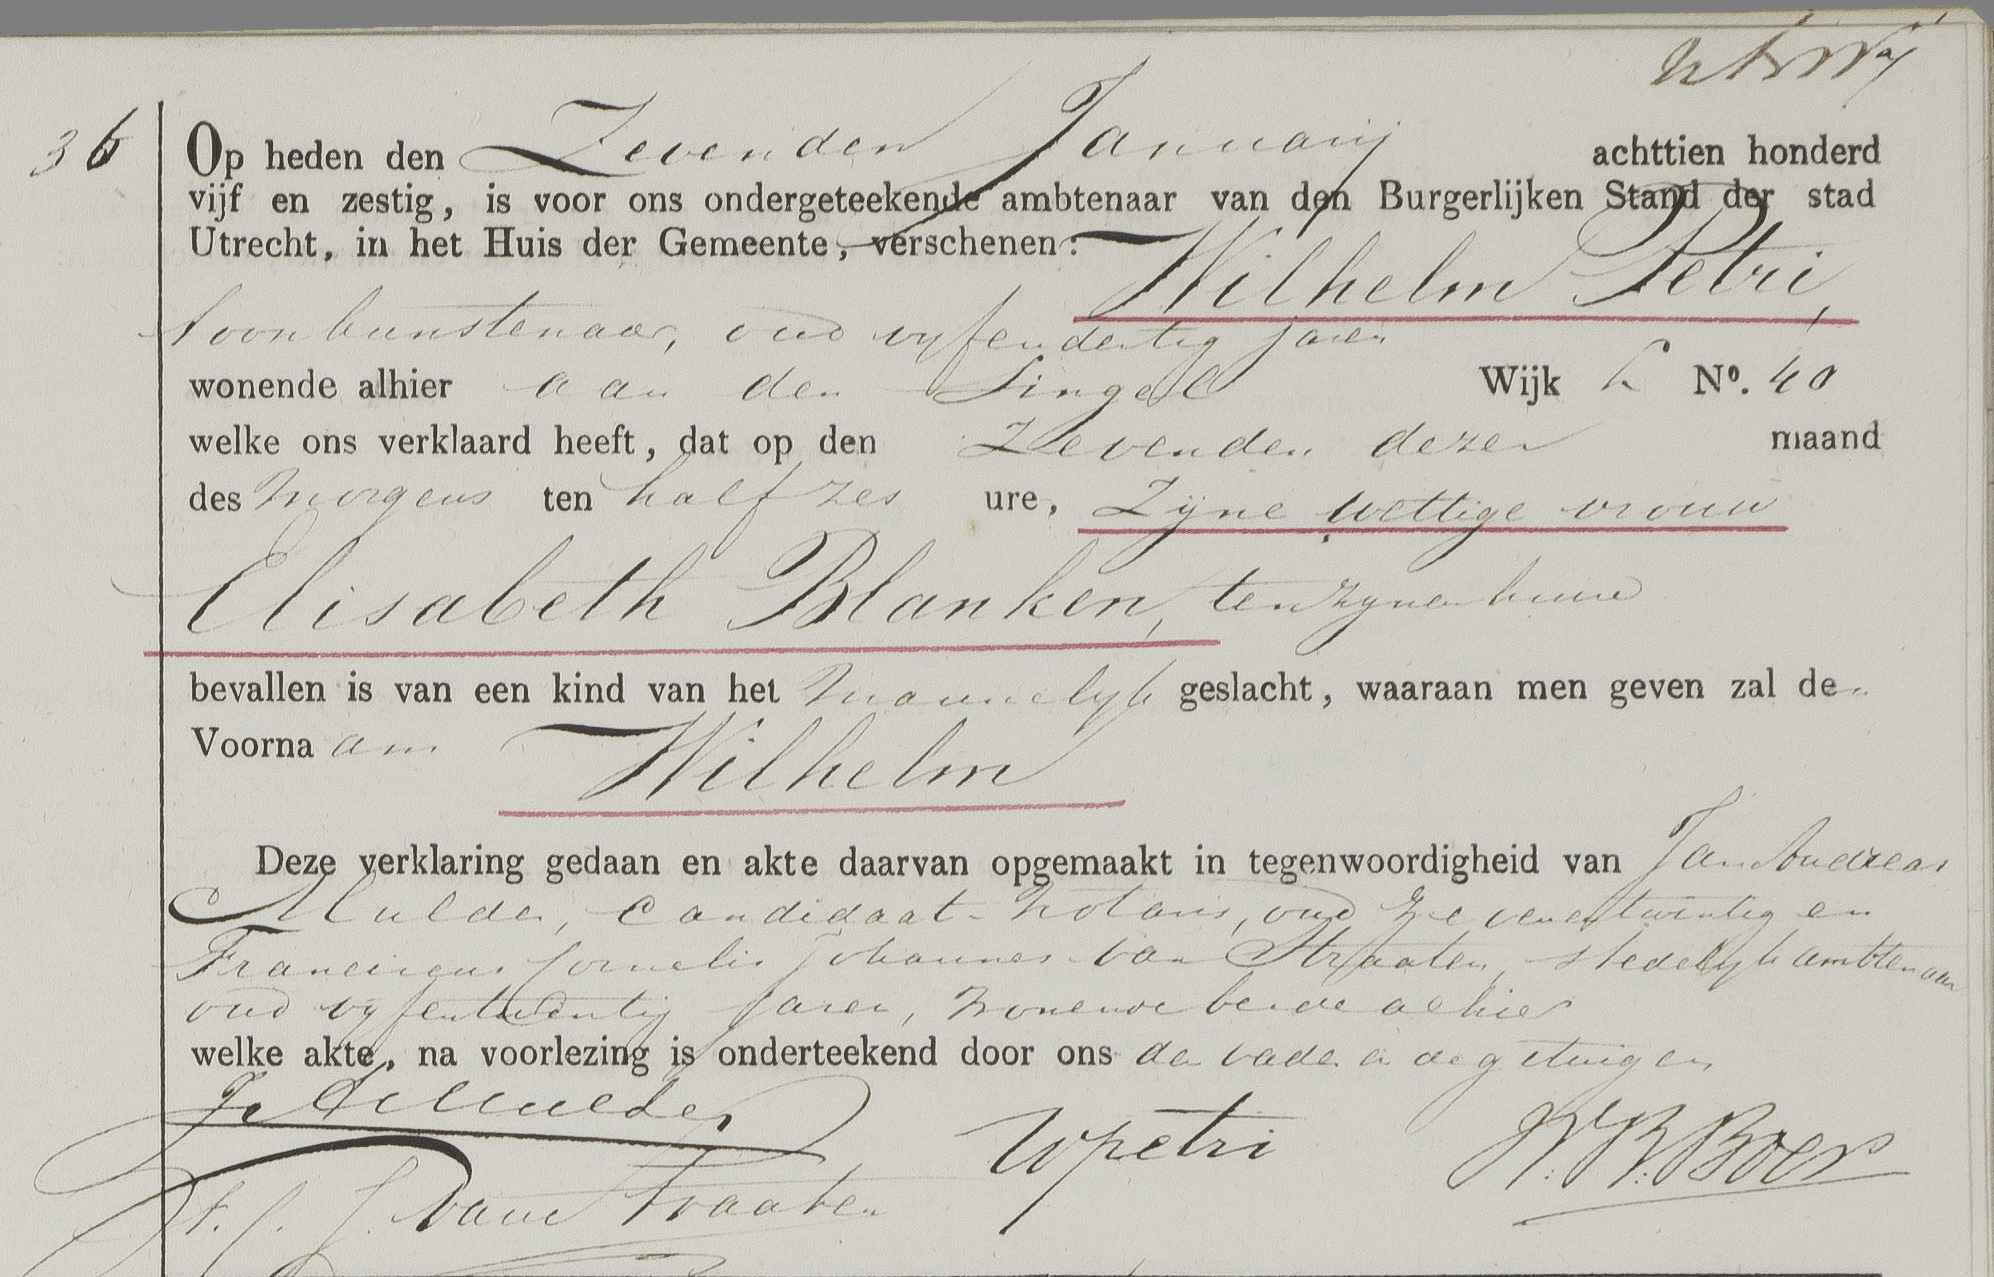 36
Op heden den Zevenden Januarij achttien honderd
vijf en zestig, is voor ons ondergeteekende ambtenaar van den Burgerlijken Stand der stad
Utrecht, in het Huis der Gemeente, verschenen: Wilhelm Petri,
toonkunstenaar, oud vijfendertig jaren
wonende alhier aan den Singel Wijk L No. 40
welke ons verklaard heeft, dat op den Zevenden dezer maand
des morgens ten half zes ure, Zijne wettige vrouw
Elisabeth Blanken, ten zijnen huize
bevallen is van een kind van het mannelijk geslacht, waaraan men geven zal den
Voornaam Wilhelm
Deze verklaring gedaan en akte daarvan opgemaakt in tegenwoordigheid van Jan Andreas
Mulder, Candidaat-Notaris, oud zevenentwintig en
Franciscus Cornelis Johannes van Straaten, stedelijk ambtenaar
oud vijfentwentig jaren, wonende beide alhier
welke akte, na voorlezing is onderteekend door ons den vader en de getuigen
J. A. Mulder WPetri W. B. Boer
F. C. J. van Straaten